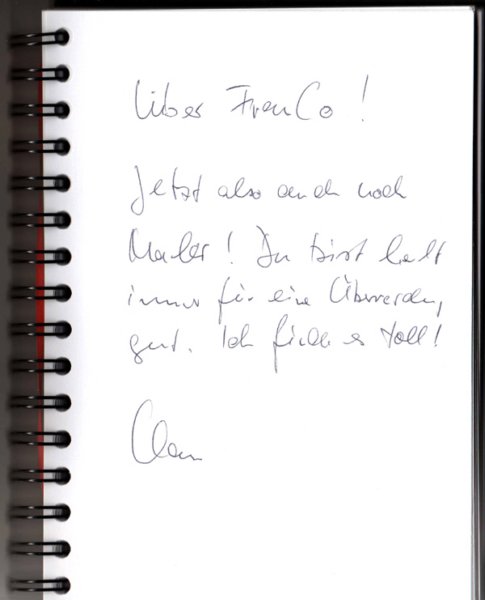 Lieber FranCo!
Jetzt also auch noch
Maler! Du bist halt
immer für eine Überraschung
gut. Ich finde es toll!